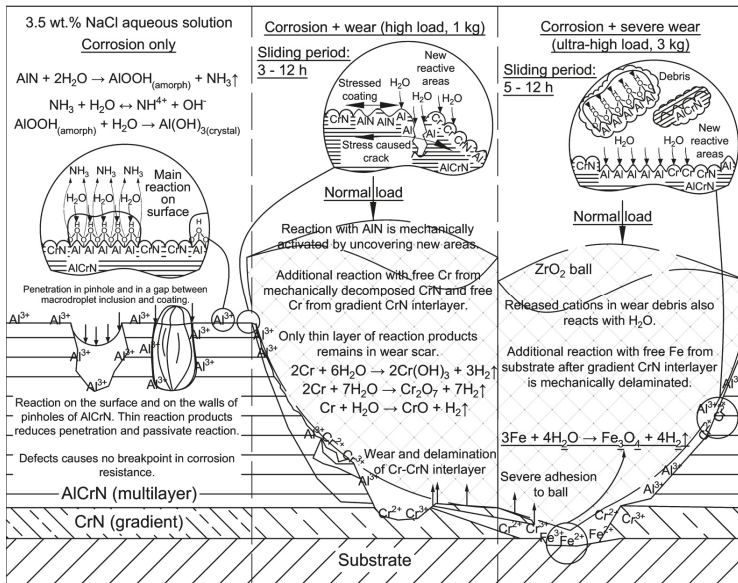 3.5 wt.% NaCl aqueous solution
Corrosion only
AlN + 2H₂O → AlOOH(amorph) + NH₃↑
NH₃ + H₂O ↔ NH⁴⁺ + OH⁻
AlOOH(amorph) + H₂O → Al(OH)₃(crystal)
NH₃ NH₃ NH₃
Main
reaction
on
surface
H₂O H₂O H₂O
H
CrN Al Al Al Al Al CrN CrN Al
AlCrN
Penetration in pinhole and in a gap between
macrodroplet inclusion and coating.
Al³⁺ Al³⁺ Al³⁺ Al³⁺
Al³⁺ Al³⁺ Al³⁺
Al³⁺ Al³⁺
Reaction on the surface and on the walls of
pinholes of AlCrN. Thin reaction products
reduces penetration and passivate reaction.
Defects causes no breakpoint in corrosion
resistance.
AlCrN (multilayer)
CrN (gradient)
Substrate
Corrosion + wear (high load, 1 kg)
Sliding period:
3 - 12 h
New
reactive
areas
Stressed
coating
H₂O
H₂O H₂O
CrN AlN AlN Al
Al Al Cr Cr CrN CrN
Stress caused
crack
AlCrN
Normal load
Reaction with AlN is mechanically
activated by uncovering new areas.
Additional reaction with free Cr from
mechanically decomposed CrN and free
Cr from gradient CrN interlayer.
Only thin layer of reaction products
remains in wear scar.
2Cr + 6H₂O → 2Cr(OH)₃ + 3H₂↑
2Cr + 7H₂O → Cr₂O₇ + 7H₂↑
Cr + H₂O → CrO + H₂↑
Al³⁺
Cr²⁺
Cr³⁺
Al³⁺
Wear and delamination
of Cr-CrN interlayer
Cr²⁺ Cr³⁺
Corrosion + severe wear
(ultra-high load, 3 kg)
Sliding period:
5 - 12 h
Debris
Al Al Al Al Al
AlCrN
New
reactive
areas
H₂O H₂O
CrN Al Al Al Al Al Cr Cr CrN
AlCrN
Normal load
ZrO₂ ball
Released cations in wear debris also
reacts with H₂O.
Additional reaction with free Fe from
substrate after gradient CrN interlayer
is mechanically delaminated.
Al³⁺
3Fe + 4H₂O → Fe₃O₄ + 4H₂↑
Severe adhesion
to ball
Al³⁺
Cr²⁺ Cr³⁺ Cr³⁺
Fe³⁺ Fe²⁺ Fe²⁺